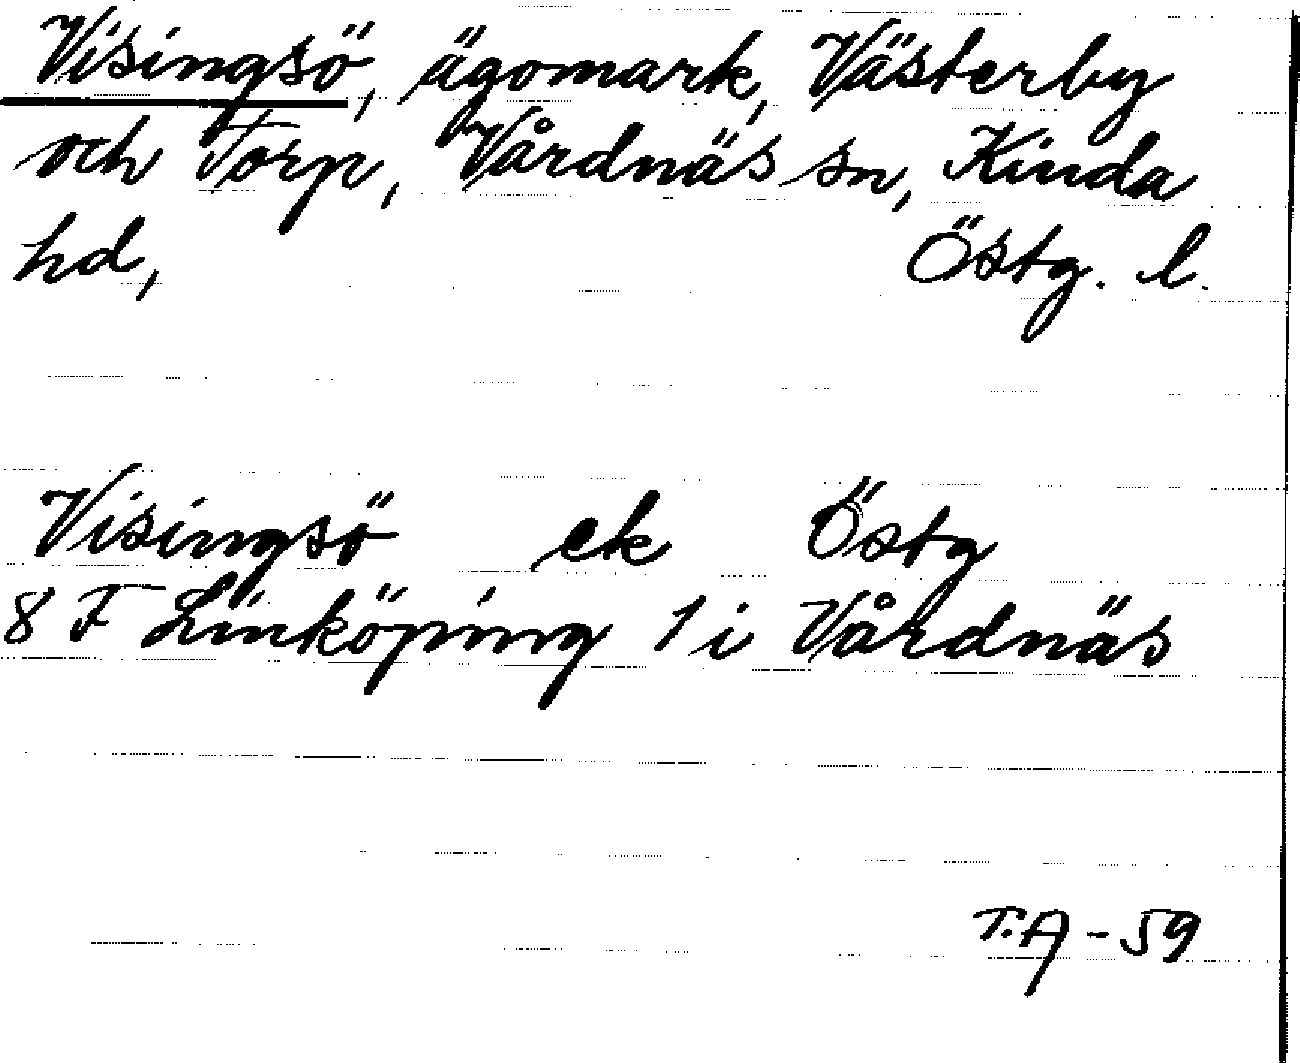 Visingsö, ägomark, Västerby
och Torp, Vårdnäs sn, Kinda
hd, Östg. l.
Visingsö ek Östg
8 F Linköping 1 i Vårdnäs
T.A - 59